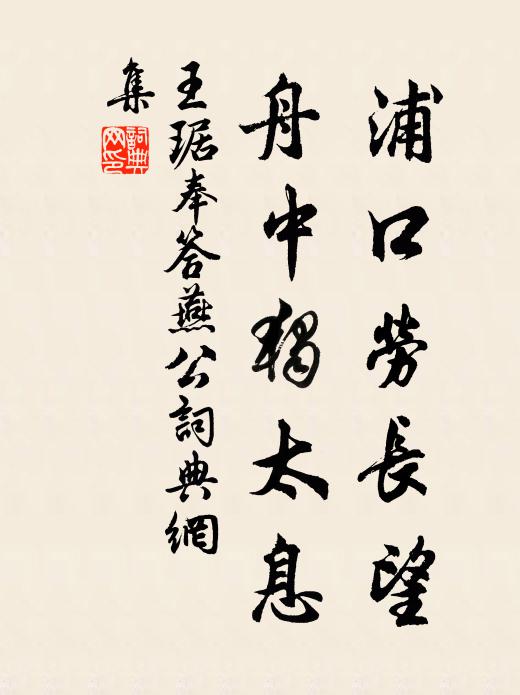 浦口勞長望
舟中獨太息
王琚奉答燕公詞典網
集
詞典
网印